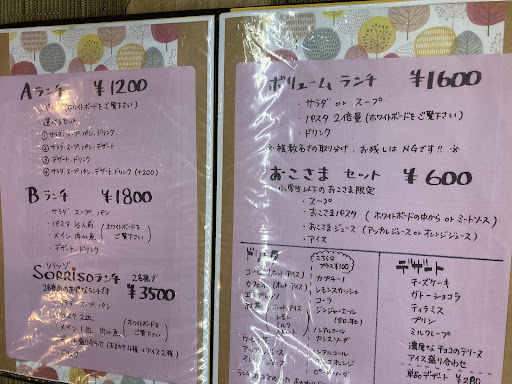 Aランチ ¥1200
(ホワイトボードをご覧下さい)
選べるセット
①サラダ、スープ、パン、ドリンク
②サラダ、スープ、パン、デザート
③デザート、ドリンク
④サラダ、スープ、パン、デザート、ドリンク (+200)
Bランチ ¥1800
・サラダ、スープ、パン
・パスタ ½人前
・メイン 肉or魚
(ホワイトボードをご覧下さい)
・デザート、ドリンク
ソリッゾ
SORRISOランチ 2名様で
¥3500
・サラダ、スープ、パン
パスタ 2皿
メイン 1皿 肉or魚
(ホワイトボードをご覧下さい)
ボリュームランチ ¥1600
・サラダ or スープ
・パスタ 2倍量 (ホワイトボードをご覧下さい)
・ドリンク
※複数名での取り分け、お残しはNGです!! ※
おこさまセット ¥600
小学生以下のおこさま限定
・スープ
・おこさまパスタ (ホワイトボードの中から or ミートソース)
・おこさまジュース (アップルジュース or オレンジジュース)
・アイス
ドリンク
こちらは
プラス¥100
コーヒー (ホット、アイス)
カプチーノ
レモンスカッシュ
コーラ
ジンジャーエール
(甘口、辛口)
紅茶 ホット、アイス
レモン
ミルク
ノンアルコール
カシスソーダ
デザート
チーズケーキ
ガトーショコラ
ティラミス
プリン
ミルクレープ
濃厚なチョコのテリーヌ
アイス盛り合わせ
単品デザート ¥280